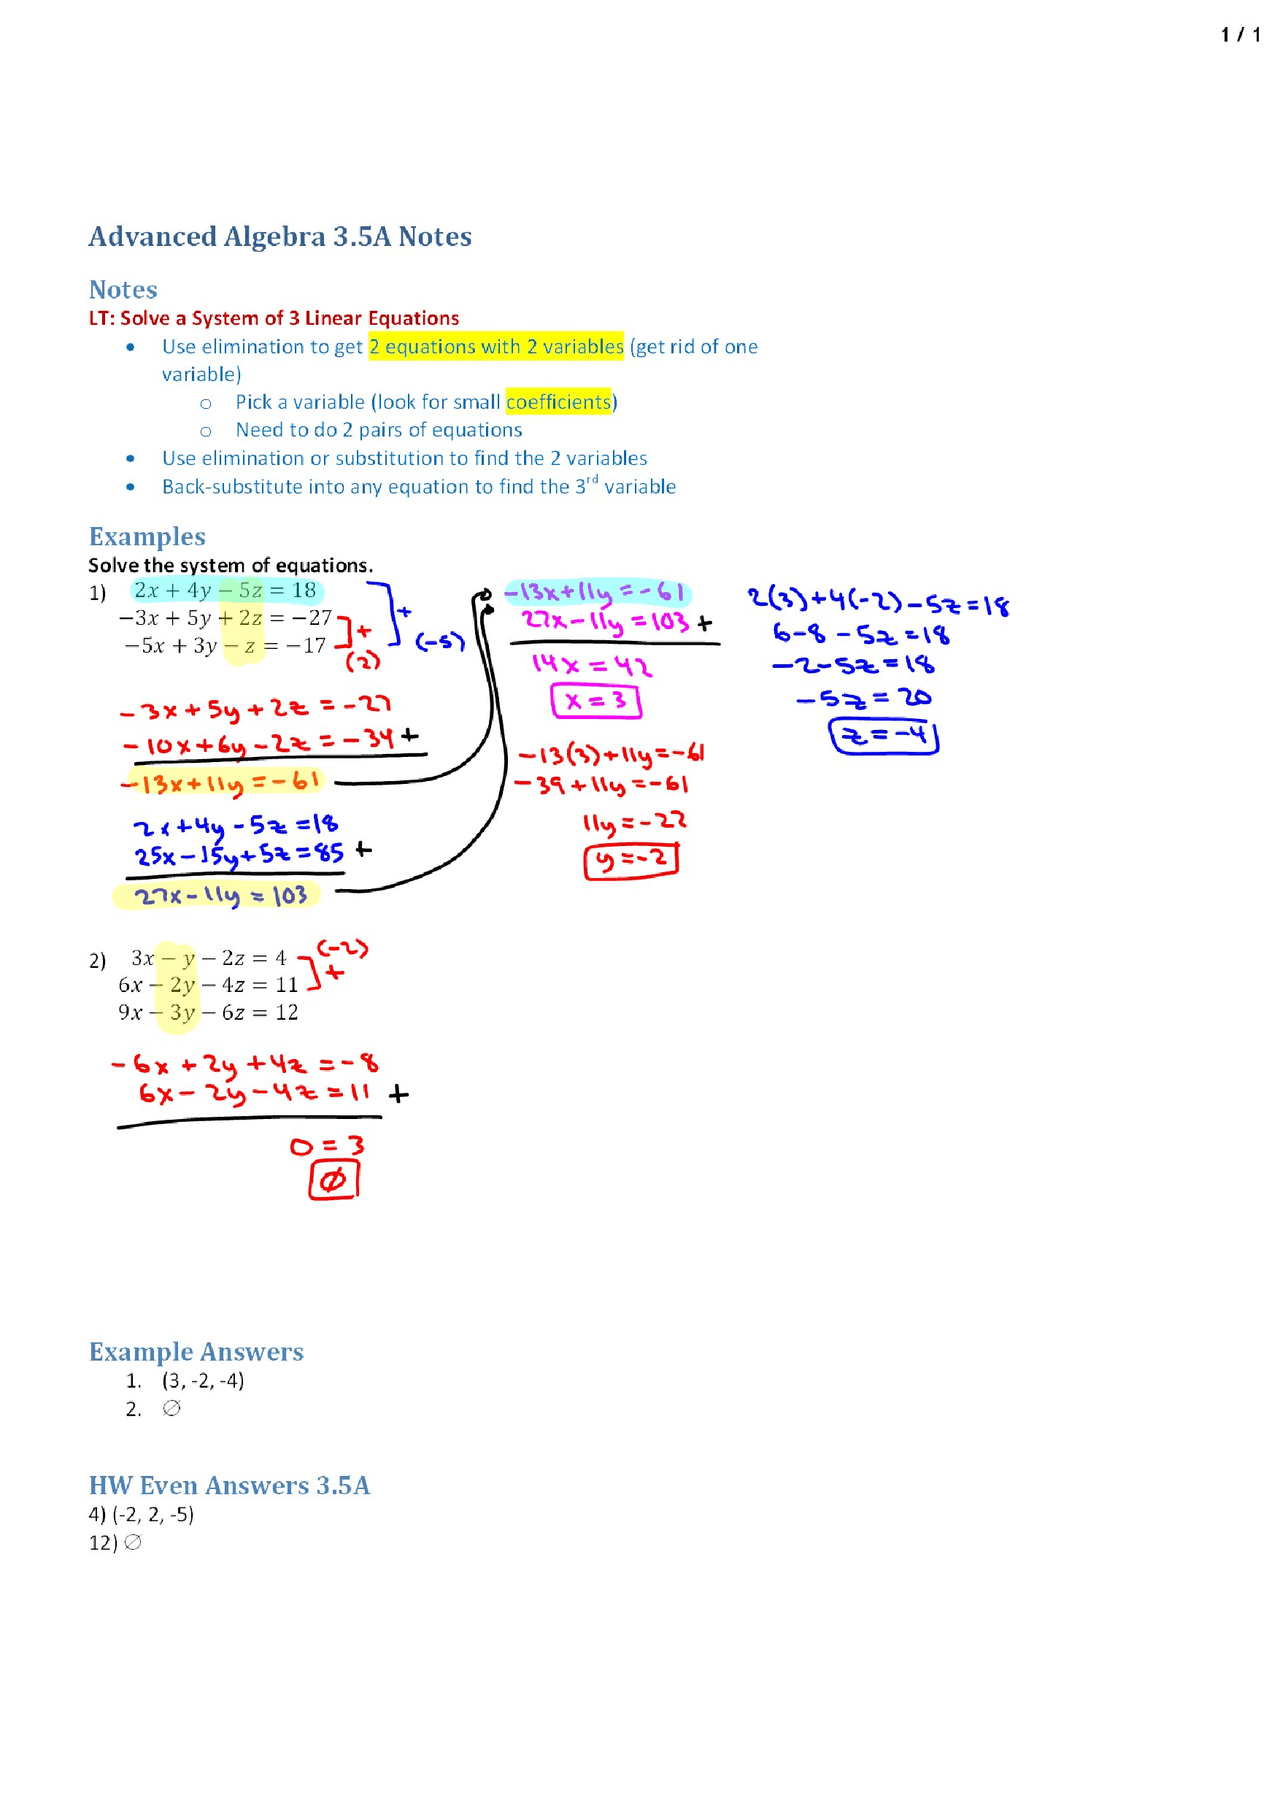 1 / 1
Advanced Algebra 3.5A Notes
Notes
LT: Solve a System of 3 Linear Equations
• Use elimination to get 2 equations with 2 variables (get rid of one
variable)
o Pick a variable (look for small coefficients)
o Need to do 2 pairs of equations
• Use elimination or substitution to find the 2 variables
• Back-substitute into any equation to find the 3rd variable
Examples
Solve the system of equations.
1) 2x + 4y − 5z = 18
−3x + 5y + 2z = −27
−5x + 3y − z = −17
+
(2)
+
(-5)
-3x+5y+2z=-27
-10x+6y-2z=-34 +
-13x+11y=-61
2x+4y-5z=18
25x-15y+5z=85 +
27x-11y=103
-13x+11y=-61
27x-11y=103 +
14x=42
x=3
-13(3)+11y=-61
-39+11y=-61
11y=-22
y=-2
2(3)+4(-2)-5z=18
6-8-5z=18
-2-5z=18
-5z=20
z=-4
2) 3x − y − 2z = 4
6x − 2y − 4z = 11
9x − 3y − 6z = 12
(-2)
+
-6x+2y+4z=-8
6x-2y-4z=11 +
0=3
∅
Example Answers
1. (3, -2, -4)
2. ∅
HW Even Answers 3.5A
4) (-2, 2, -5)
12) ∅